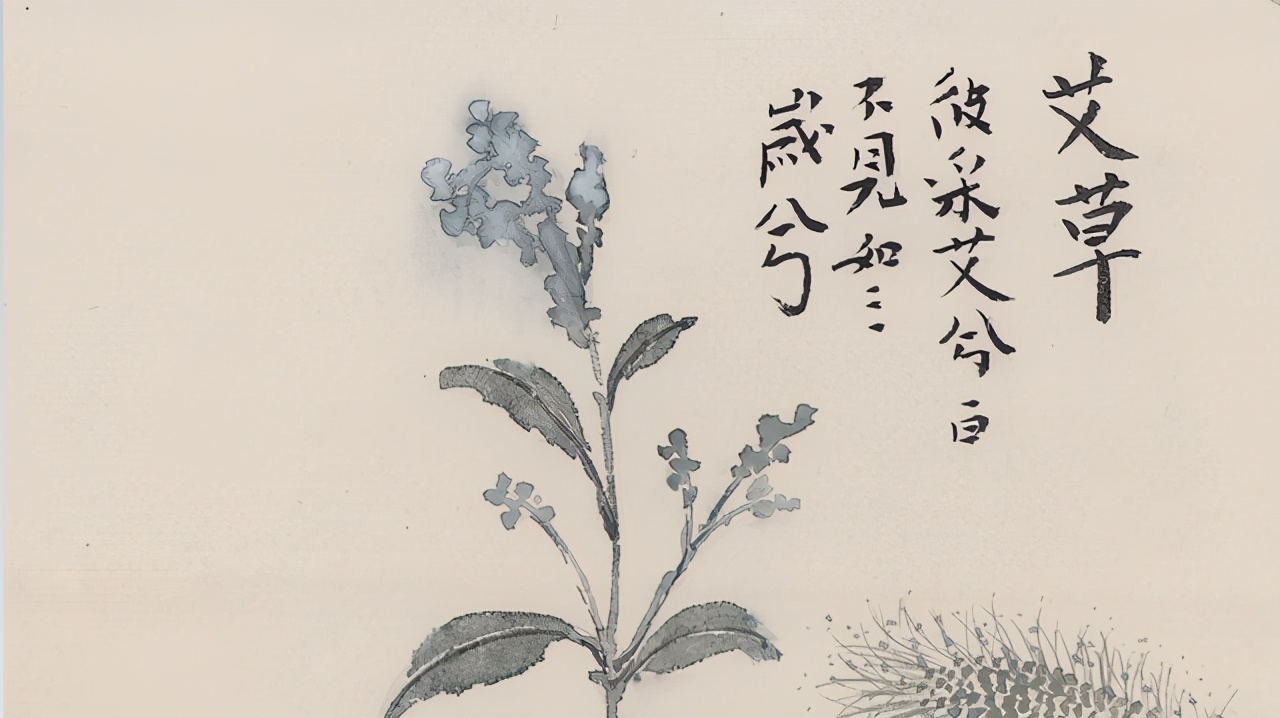 艾草
彼采艾兮 白
不見如三
歲兮